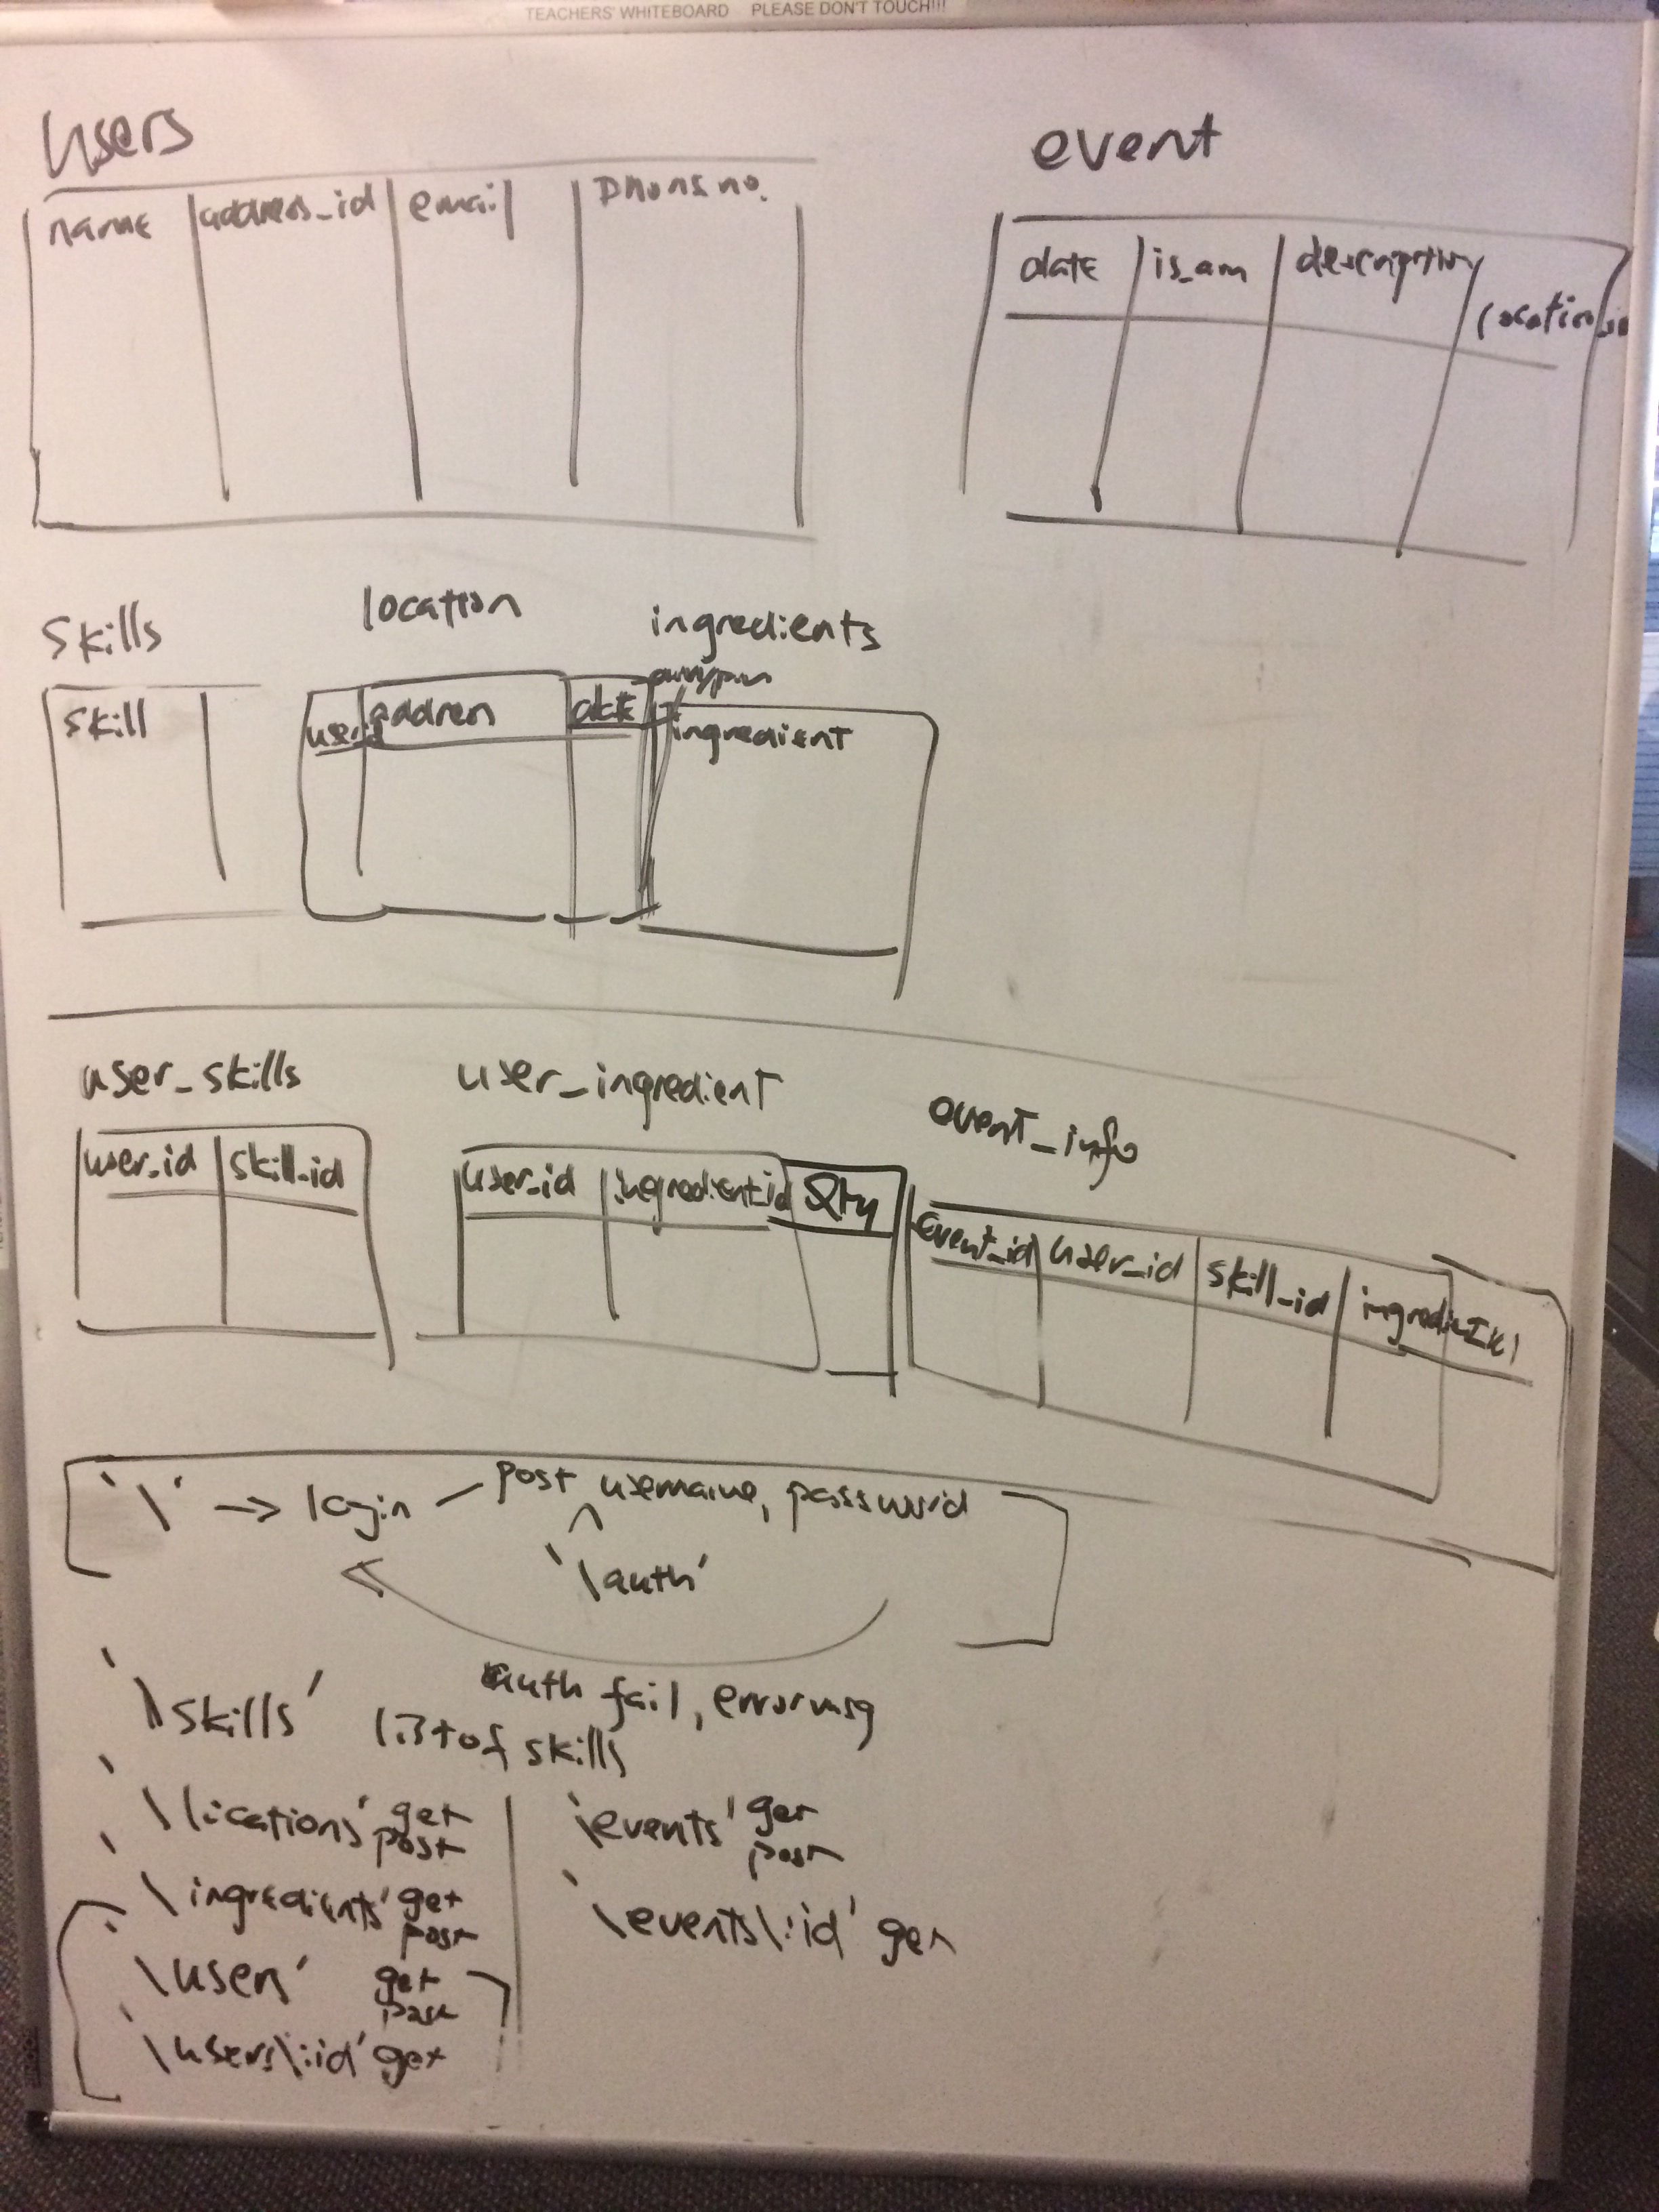 TEACHERS' WHITEBOARD PLEASE DON'T TOUCH!!!
Users
name address_id email Phone no.
event
date is_am description location_id
Skills
skill
location
userid address date
ingredients
ingredient
user_skills
user_id skill_id
user_ingredient
user_id ingredient_id Qty
event_info
event_id user_id skill_id ingredient
'\' → login — post username, password
^
'\auth'
auth fail, error msg
'\skills' list of skills
'\locations' get
post
'\ingredients' get
post
'\users' get
post
'\users\:id' get
'\events' get
post
'\events\:id' get